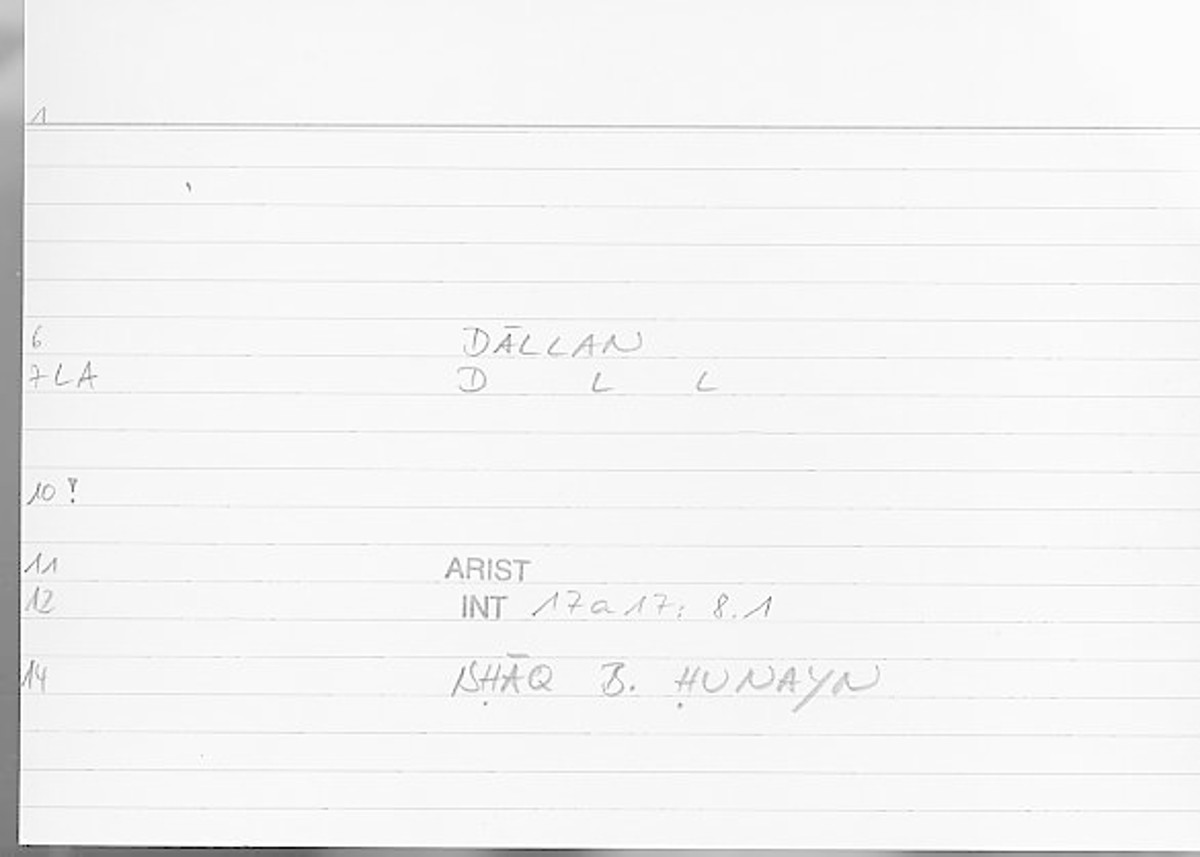 1
6 DĀLLAN
7 LA D L L
10 !
11 ARIST
12 INT 17a17; 8.1
14 ISḤĀQ B. ḤUNAYN